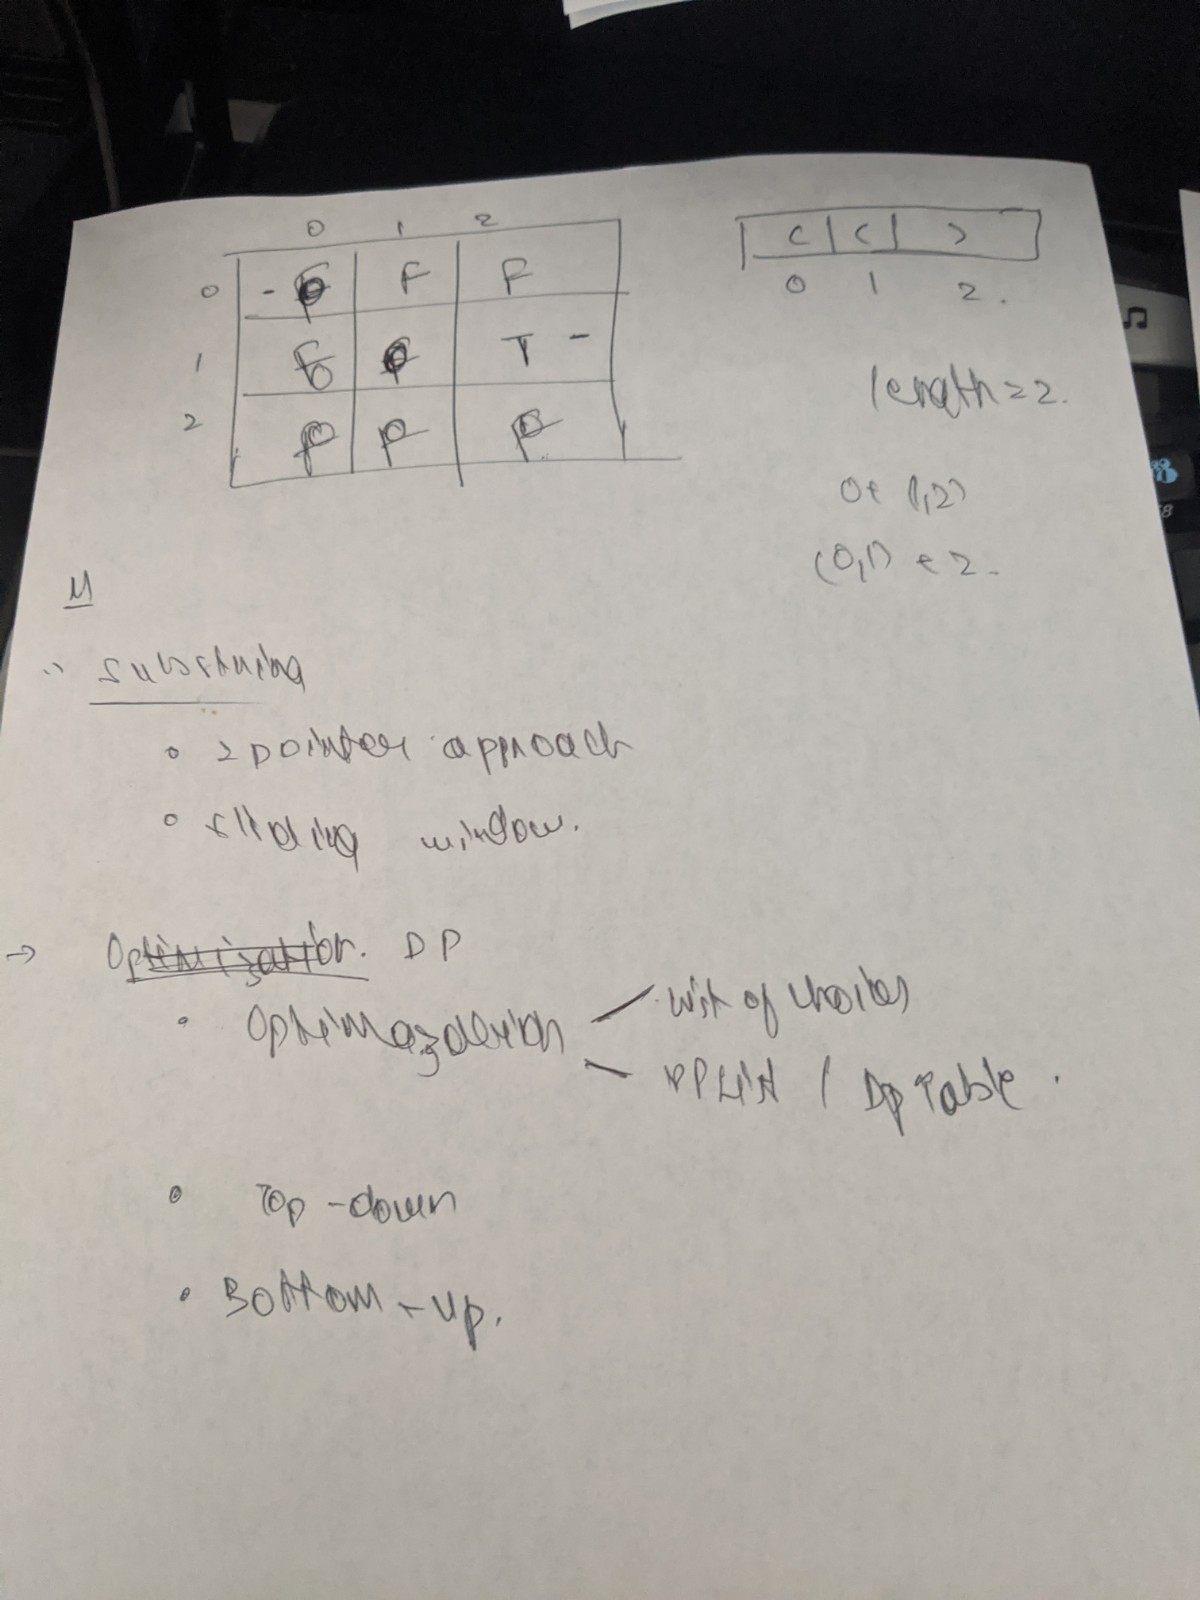 0 1 2
0 - F F F
1 F F T -
2 F F F
( ( )
0 1 2.
length = 2.
0 + (1,2)
(0,1) + 2.
substring
2 pointer approach
sliding window.
→ Optimization. DP
list of choices
DP List / Dp Table.
Top-down
Bottom-up.